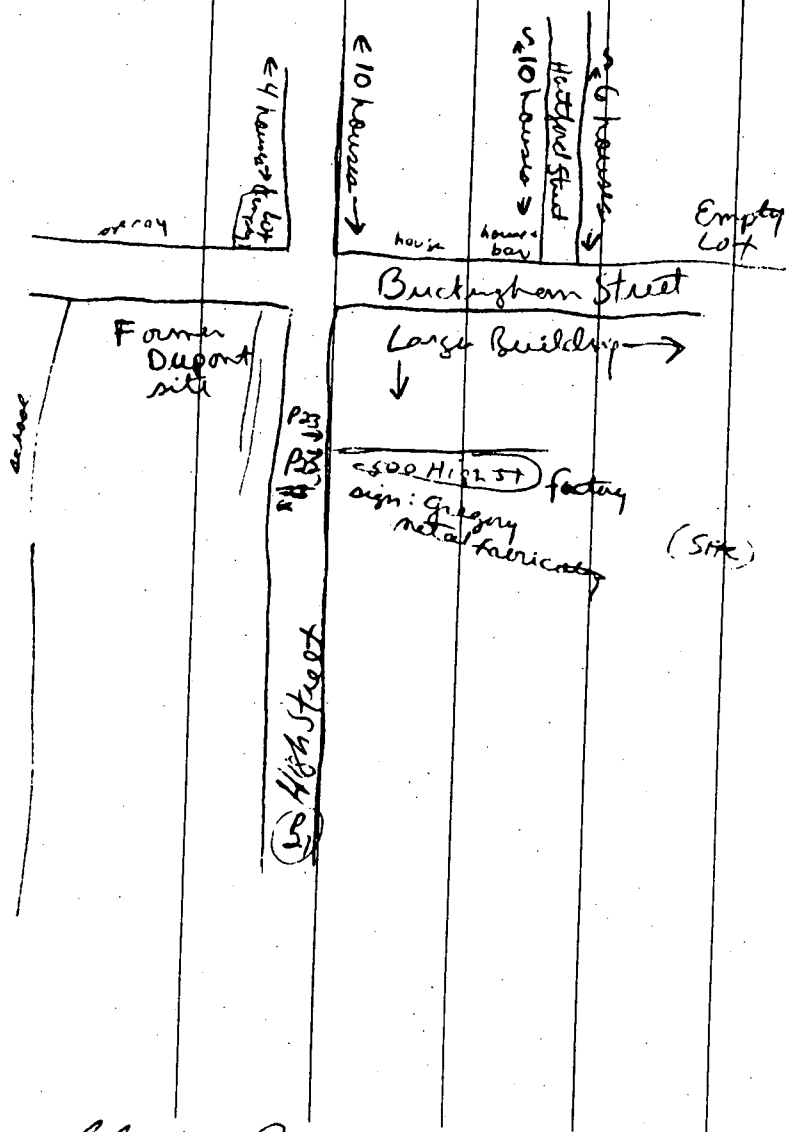 4 houses
Empty Lot
10 houses
10 houses
Hartford Street
6 houses
Empty
Lot
house
house +
bar
Buckingham Street
Former
Dupont
site
Large Building
school
500 High St factory
sign: Gregory
metal
(Site)
High Street